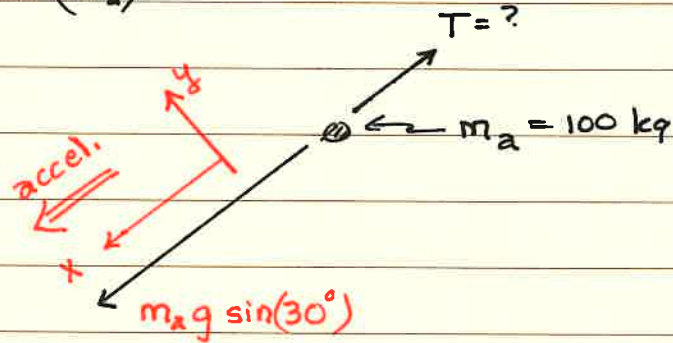 T = ?
y
mₐ = 100 kg
accel.
x
mₐg sin(30°)